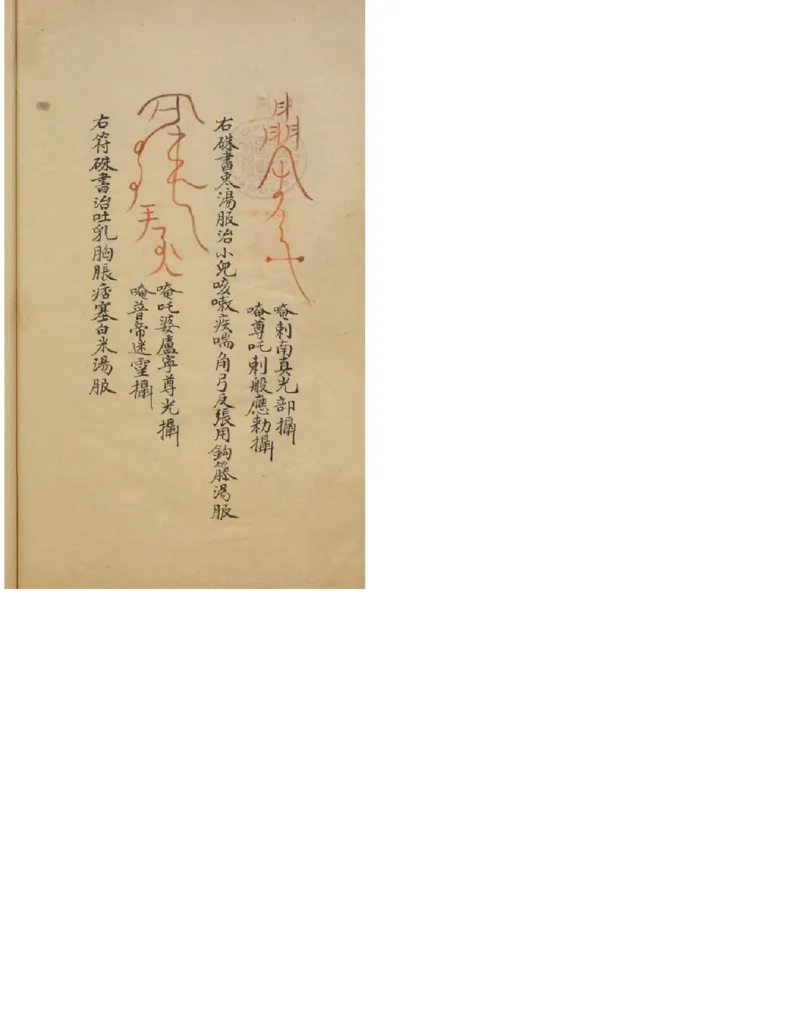 唵剌南真光部攝
唵尊吒剌般應勑攝
右硃書枣湯服治小兒咳嗽疾喘角弓反張用鈎籐湯服
唵吒婆盧寧尊光攝
唵普帝迷靈攝
右符硃書治吐乳胸脹痞塞白米湯服